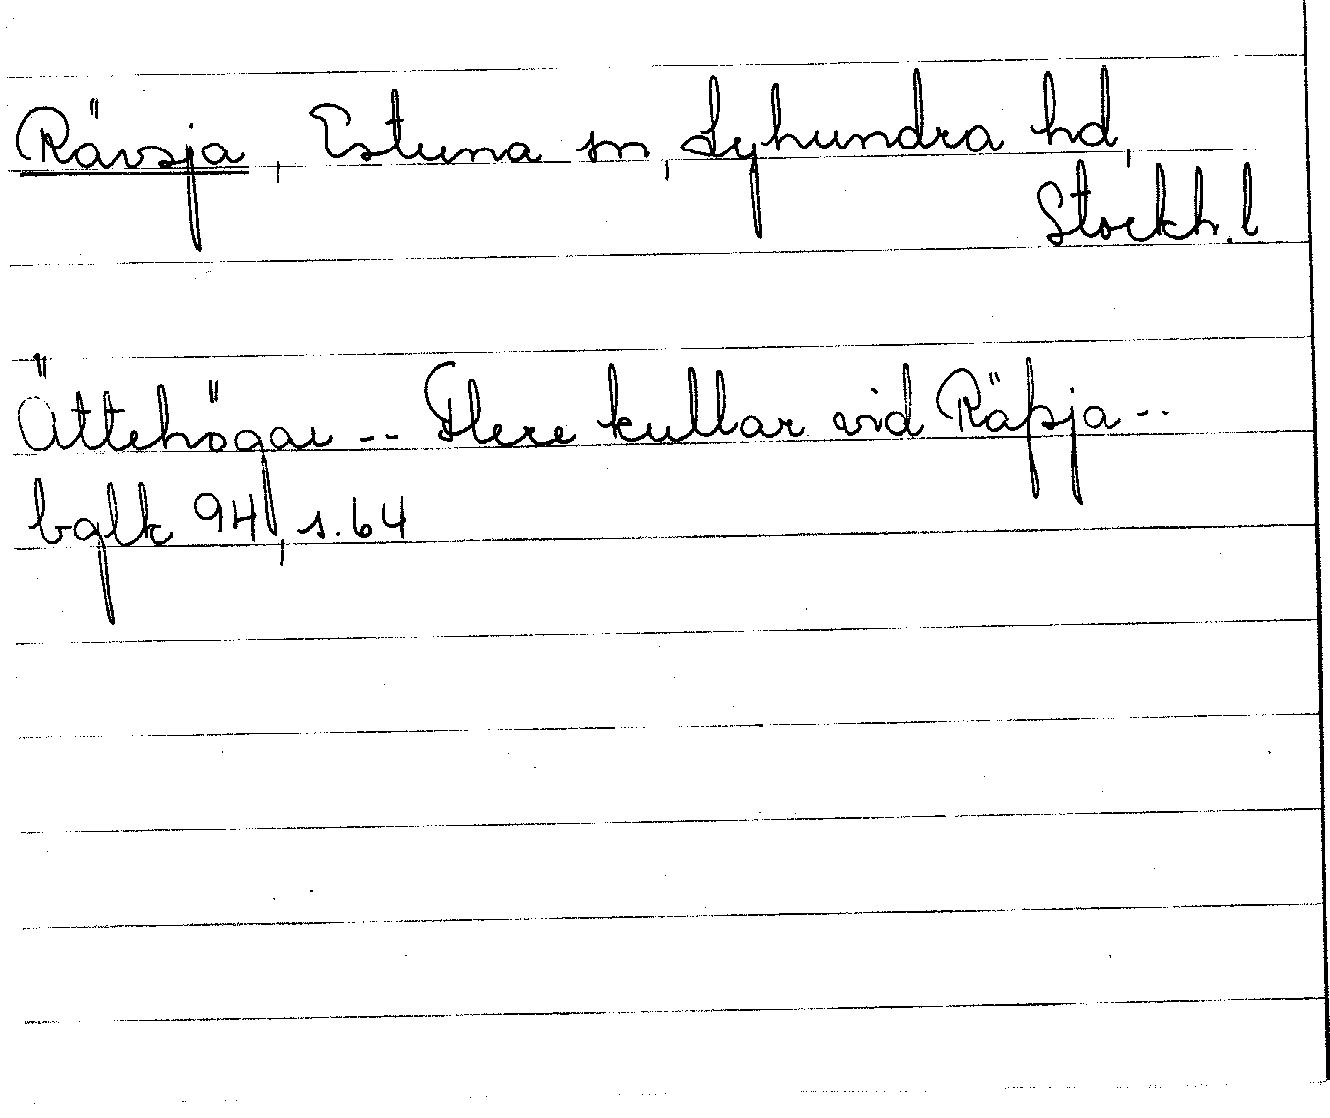 Rävsja, Estuna sn, Lyhundra hd,
Stockh. l
Ättehögar -- Flere kullar vid Räfsja --
bglk 94, s. 64